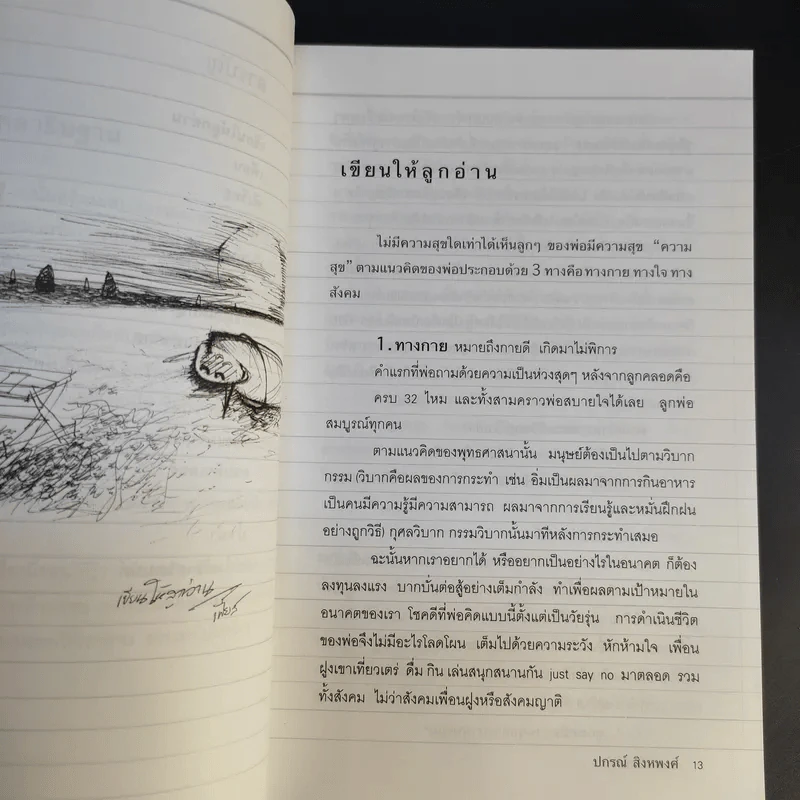 เขียนให้ลูกอ่าน
เขียนให้ลูกอ่าน
ไม่มีความสุขใดเท่าได้เห็นลูกๆ ของพ่อมีความสุข "ความ
สุข" ตามแนวคิดของพ่อประกอบด้วย 3 ทางคือทางกาย ทางใจ ทาง
สังคม
1. ทางกาย หมายถึงกายดี เกิดมาไม่พิการ
คำแรกที่พ่อถามด้วยความเป็นห่วงสุดๆ หลังจากลูกคลอดคือ
ครบ 32 ไหม และทั้งสามคราวพ่อสบายใจได้เลย ลูกพ่อ
สมบูรณ์ทุกคน
ตามแนวคิดของพุทธศาสนานั้น มนุษย์ต้องเป็นไปตามวิบาก
กรรม (วิบากคือผลของการกระทำ เช่น อิ่มเป็นผลมาจากการกินอาหาร
เป็นคนมีความรู้มีความสามารถ ผลมาจากการเรียนรู้และหมั่นฝึกฝน
อย่างถูกวิธี) กุศลวิบาก กรรมวิบากนั้นมาทีหลังการกระทำเสมอ
ฉะนั้นหากเราอยากได้ หรืออยากเป็นอย่างไรในอนาคต ก็ต้อง
ลงทุนลงแรง บากบั่นต่อสู้อย่างเต็มกำลัง ทำเพื่อผลตามเป้าหมายใน
อนาคตของเรา โชคดีที่พ่อคิดแบบนี้ตั้งแต่เป็นวัยรุ่น การดำเนินชีวิต
ของพ่อจึงไม่มีอะไรโลดโผน เต็มไปด้วยความระวัง หักห้ามใจ เพื่อน
ฝูงเขาเที่ยวเตร่ ดื่ม กิน เล่นสนุกสนานกัน just say no มาตลอด รวม
ทั้งสังคม ไม่ว่าสังคมเพื่อนฝูงหรือสังคมญาติ
ปกรณ์ สิงหพงศ์ 13